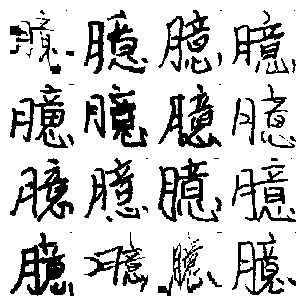 臆臆臆臆
臆臆臆臆
臆臆臆臆
臆臆臆臆